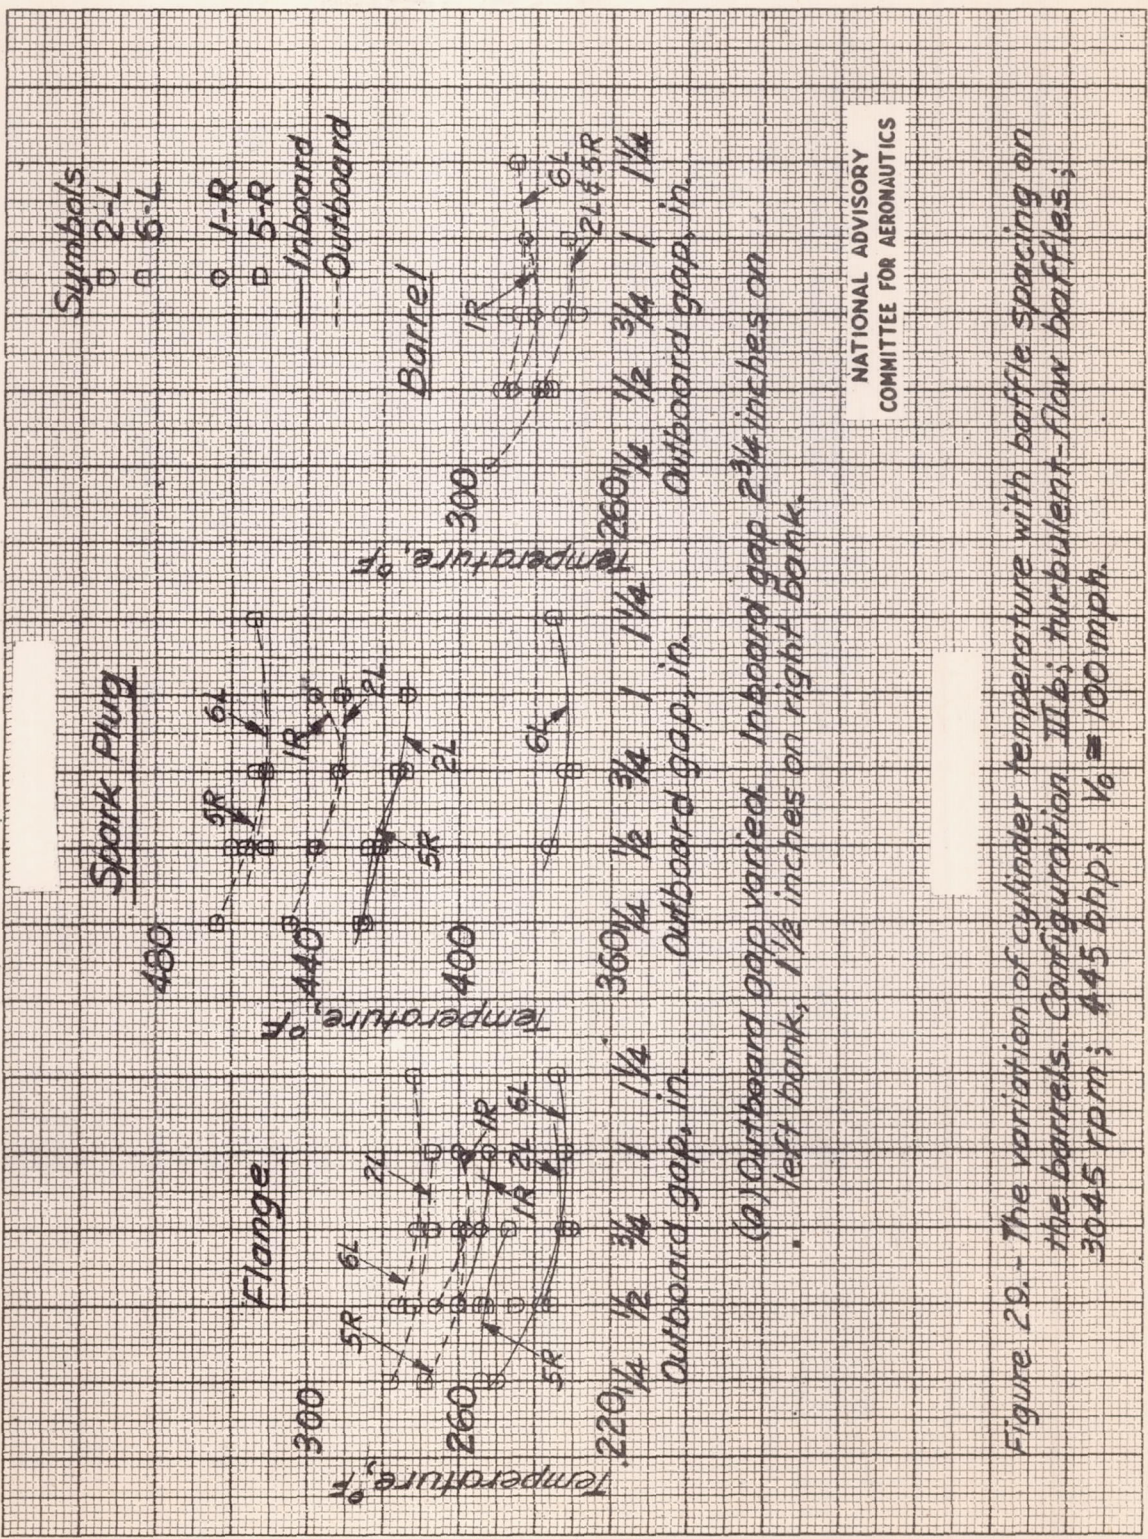 Symbols
2-L
6-L
1-R
5-R
Inboard
Outboard
Flange
Temperature, °F
300
260
220
1/4 1/2 3/4 1 1 1/4
Outboard gap, in.
5R
6L
2L
1R
1R
2L
6L
5R
Spark Plug
Temperature, °F
480
440
400
360
1/4 1/2 3/4 1 1 1/4
Outboard gap, in.
5R
6L
1R
2L
2L
5R
6L
Barrel
Temperature, °F
300
260
1/4 1/2 3/4 1 1 1/4
Outboard gap, in.
1R
6L
2L & 5R
(a) Outboard gap varied. Inboard gap 2 3/4 inches on
left bank, 1 1/2 inches on right bank.
NATIONAL ADVISORY
COMMITTEE FOR AERONAUTICS
Figure 29.- The variation of cylinder temperature with baffle spacing on
the barrels. Configuration IIIb; turbulent-flow baffles;
3045 rpm; 445 bhp; V₀ = 100 mph.